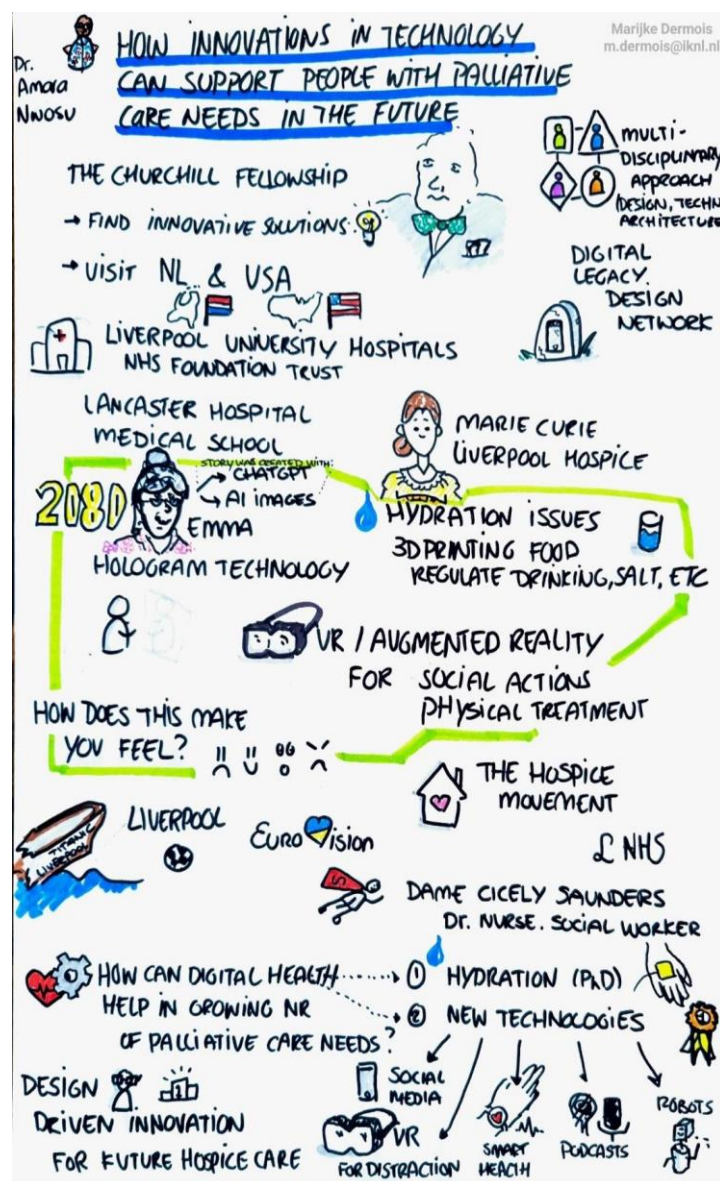 Marijke Dermois
m.dermois@iknl.nl
Dr.
Amara
Nwosu
HOW INNOVATIONS IN TECHNOLOGY
CAN SUPPORT PEOPLE WITH PALLIATIVE
CARE NEEDS IN THE FUTURE
THE CHURCHILL FELLOWSHIP
→ FIND INNOVATIVE SOLUTIONS
→ VISIT NL & USA
MULTI-
DISCIPLINARY
APPROACH
(DESIGN, TECHN
ARCHITECTURE
DIGITAL
LEGACY.
DESIGN
NETWORK
LIVERPOOL UNIVERSITY HOSPITALS
NHS FOUNDATION TRUST
LANCASTER HOSPITAL
MEDICAL SCHOOL
MARIE CURIE
LIVERPOOL HOSPICE
STORY WAS CREATED WITH:
→ CHATGPT
→ AI IMAGES
2080
EMMA
HOLOGRAM TECHNOLOGY
HYDRATION ISSUES
3D PRINTING FOOD
REGULATE DRINKING, SALT, ETC
VR / AUGMENTED REALITY
FOR SOCIAL ACTIONS
PHYSICAL TREATMENT
HOW DOES THIS MAKE
YOU FEEL?
THE HOSPICE
MOVEMENT
TITANIC
LIVERPOOL
LIVERPOOL
EUROVISION
£ NHS
S
DAME CICELY SAUNDERS
Dr. NURSE. SOCIAL WORKER
HOW CAN DIGITAL HEALTH
HELP IN GROWING NR
OF PALLIATIVE CARE NEEDS?
1 HYDRATION (PhD)
2 NEW TECHNOLOGIES
DESIGN
DRIVEN INNOVATION
FOR FUTURE HOSPICE CARE
SOCIAL
MEDIA
VR
FOR DISTRACTION
SMART
HEALTH
PODCASTS
ROBOTS